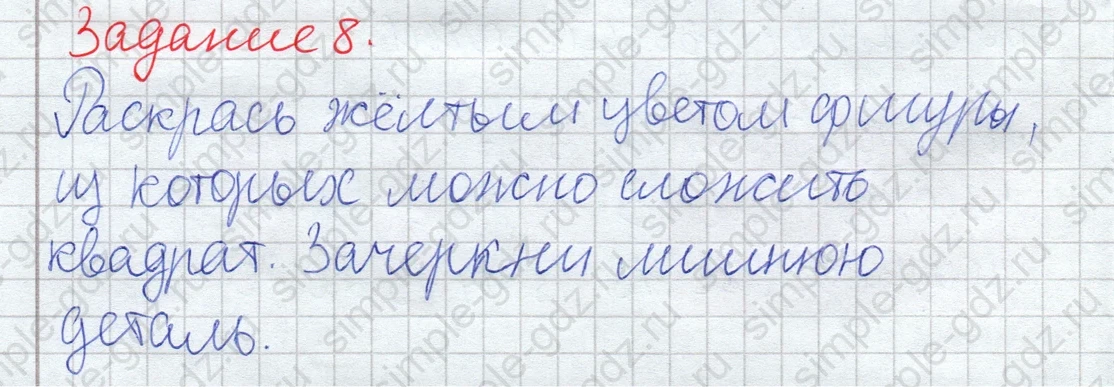 Задание 8.
Раскрась жёлтым цветом фигуры,
из которых можно сложить
квадрат. Зачеркни лишнюю
деталь.
simple-gdz.ru